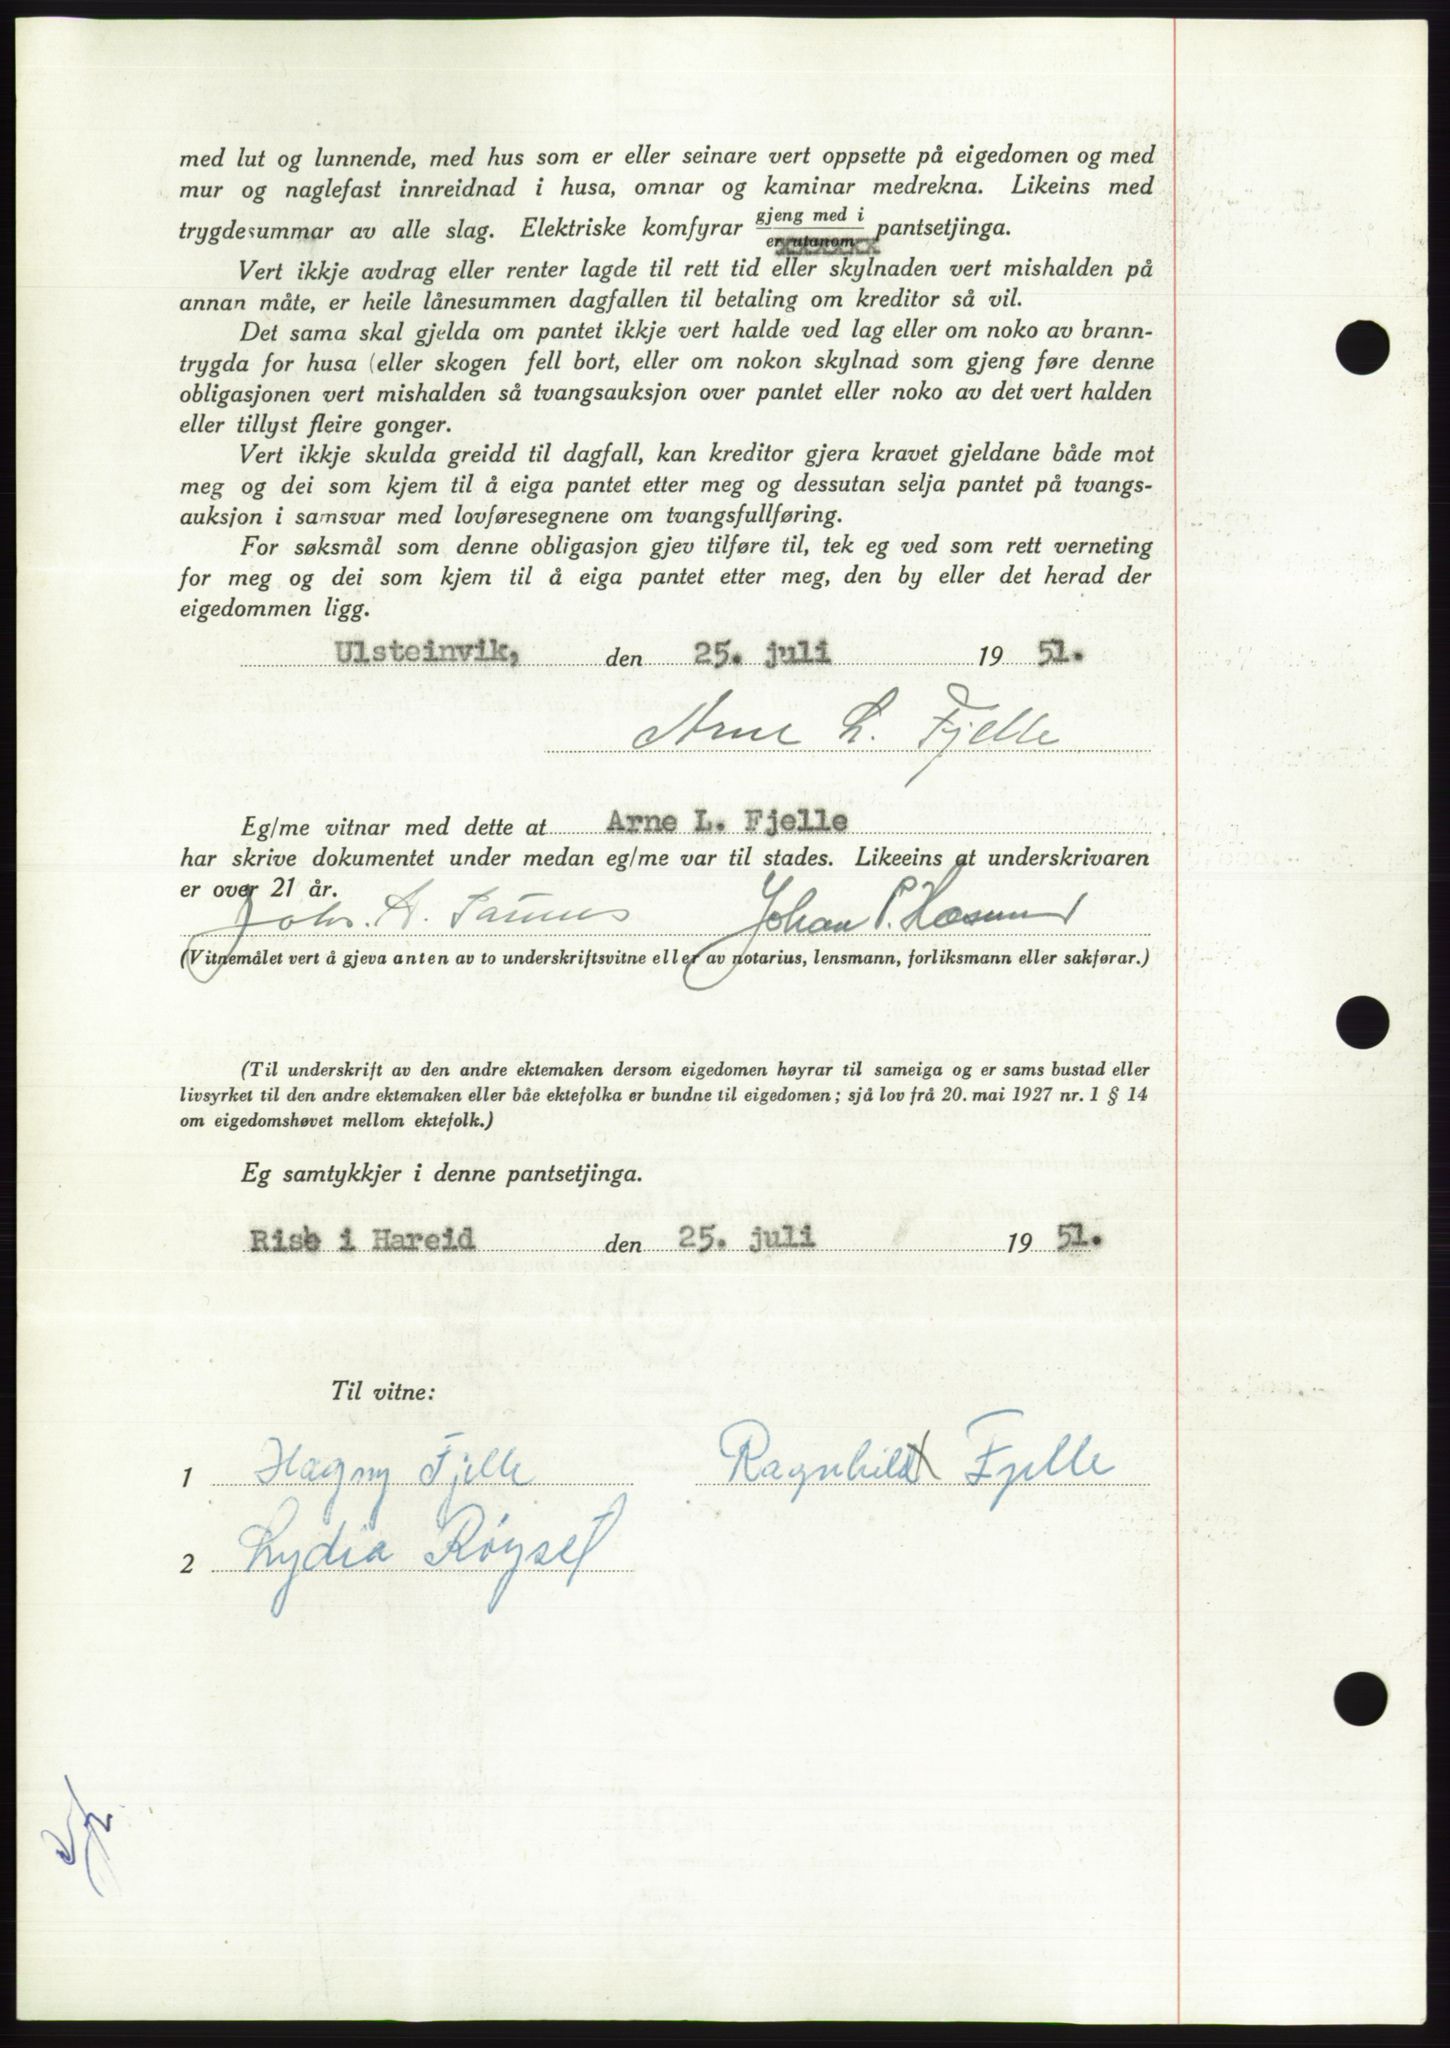 med lut og lunnende, med hus som er eller seinare vert oppsette på eigedomen og med
mur og naglefast innreidnad i husa, omnar og kaminar medrekna. Likeins med
trygdesummar av alle slag. Elektriske komfyrar gjeng med i / er utanom pantsetjinga.
Vert ikkje avdrag eller renter lagde til rett tid eller skylnaden vert mishalden på
annan måte, er heile lånesummen dagfallen til betaling om kreditor så vil.
Det sama skal gjelda om pantet ikkje vert halde ved lag eller om noko av brann-
trygda for husa (eller skogen fell bort, eller om nokon skylnad som gjeng føre denne
obligasjonen vert mishalden så tvangsauksjon over pantet eller noko av det vert halden
eller tillyst fleire gonger.
Vert ikkje skulda greidd til dagfall, kan kreditor gjera kravet gjeldane både mot
meg og dei som kjem til å eiga pantet etter meg og dessutan selja pantet på tvangs-
auksjon i samsvar med lovføresegnene om tvangsfullføring.
For søksmål som denne obligasjon gjev tilføre til, tek eg ved som rett verneting
for meg og dei som kjem til å eiga pantet etter meg, den by eller det herad der
eigedommen ligg.
Ulsteinvik, den 25. juli 19 51.
Arne L. Fjelle
Eg/me vitnar med dette at Arne L. Fjelle
har skrive dokumentet under medan eg/me var til stades. Likeeins at underskrivaren
er over 21 år.
Johs. A. Johan P.
(Vitnemålet vert å gjeva anten av to underskriftsvitne eller av notarius, lensmann, forliksmann eller sakførar.)
(Til underskrift av den andre ektemaken dersom eigedomen høyrar til sameiga og er sams bustad eller
livsyrket til den andre ektemaken eller båe ektefolka er bundne til eigedomen; sjå lov frå 20. mai 1927 nr. 1 § 14
om eigedomshøvet mellom ektefolk.)
Eg samtykkjer i denne pantsetjinga.
i Hareid den 25. juli 19 51.
Til vitne:
1 Hagny Fjelle Ragnhild Fjelle
2 Lydia Røyset